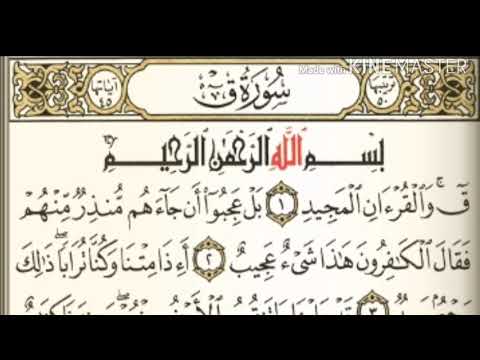 Made with KINEMASTER
ترتيبها ٥٠ سُورَةُ قٓ آياتها ٤٥
بِسْمِ ٱللَّهِ ٱلرَّحْمَٰنِ ٱلرَّحِيمِ
قٓ ۚ وَٱلْقُرْءَانِ ٱلْمَجِيدِ ١ بَلْ عَجِبُوٓا۟ أَن جَآءَهُم مُّنذِرٌ مِّنْهُمْ
فَقَالَ ٱلْكَٰفِرُونَ هَٰذَا شَىْءٌ عَجِيبٌ ٢ أَءِذَا مِتْنَا وَكُنَّا تُرَابًا ۖ ذَٰلِكَ
٣